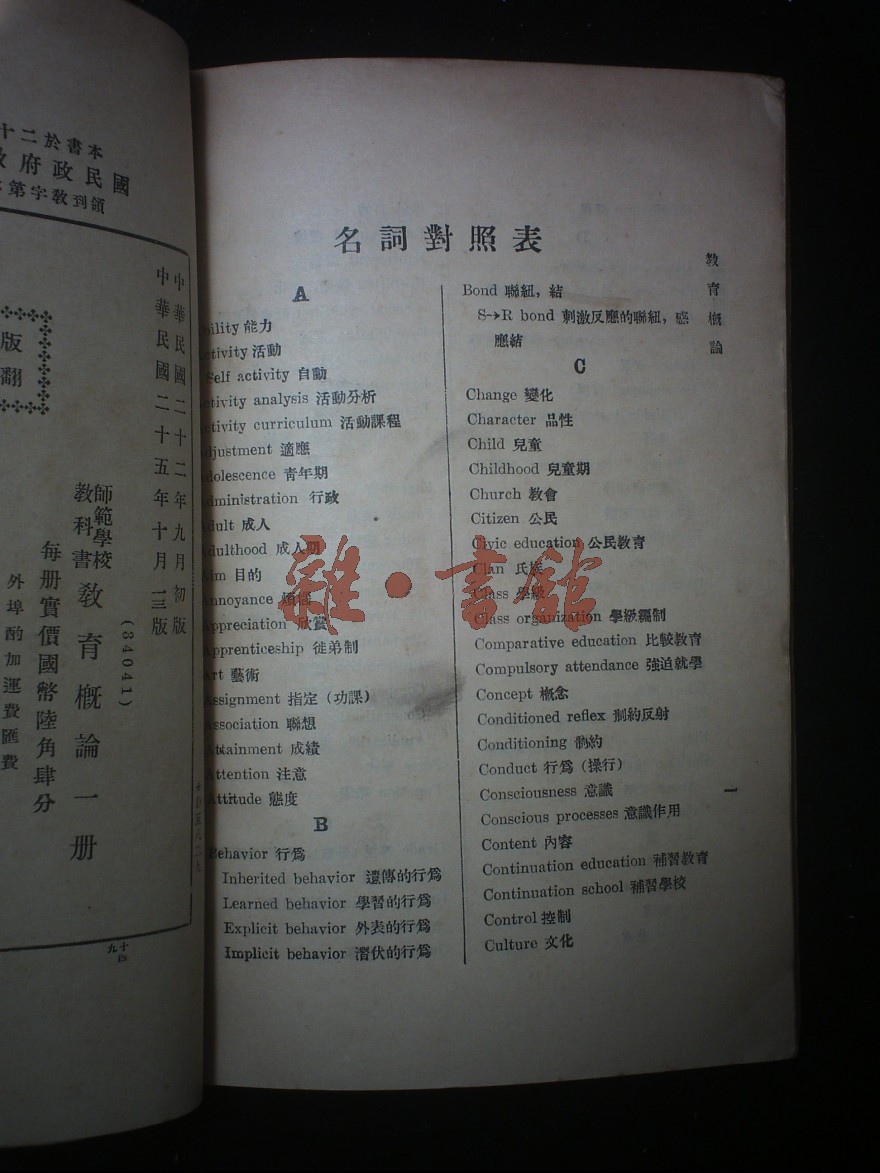 名詞對照表
教育概論
A
bility 能力
ctivity 活動
Self activity 自動
ctivity analysis 活動分析
ctivity curriculum 活動課程
djustment 適應
dolescence 青年期
dministration 行政
dult 成人
Adulthood 成人期
Aim 目的
Annoyance 煩惱
Appreciation 欣賞
Apprenticeship 徒弟制
Art 藝術
Assignment 指定(功課)
Association 聯想
Attainment 成績
Attention 注意
Attitude 態度
B
Behavior 行爲
Inherited behavior 遺傳的行爲
Learned behavior 學習的行爲
Explicit behavior 外表的行爲
Implicit behavior 潛伏的行爲
Bond 聯紐,結
S→R bond 刺激反應的聯紐,感
應結
C
Change 變化
Character 品性
Child 兒童
Childhood 兒童期
Church 教會
Citizen 公民
Civic education 公民教育
Clan 氏族
Class 學級
Class organization 學級編制
Comparative education 比較教育
Compulsory attendance 強迫就學
Concept 概念
Conditioned reflex 制約反射
Conditioning 制約
Conduct 行爲(操行)
Consciousness 意識
Conscious processes 意識作用
Content 內容
Continuation education 補習教育
Continuation school 補習學校
Control 控制
Culture 文化
1
本書於二十
國民政府
領到教字第
中華民國二十二年九月初版
中華民國二十五年十月一三版
師範學校
教科書
教育概論一册
(34041)
每册實價國幣陸角肆分
外埠酌加運費匯費
版
翻
雜·書館